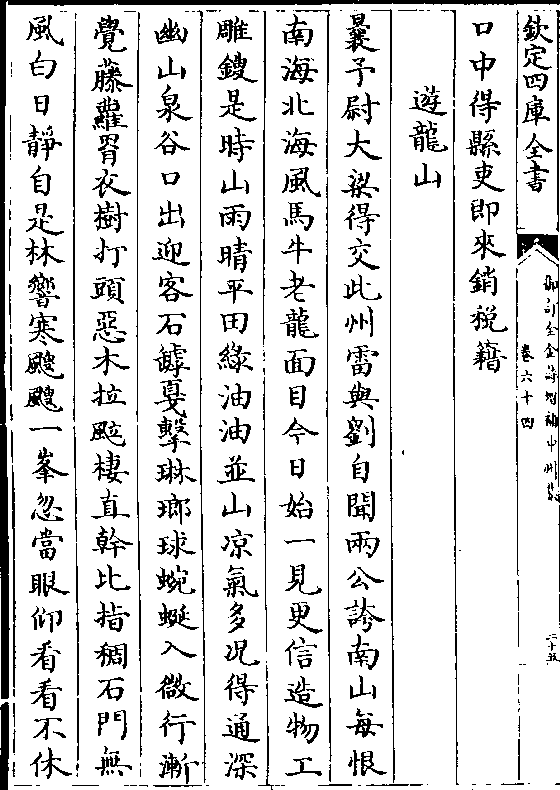 欽定四庫全書
卷六十四
口中得縣吏即來銷稅籍
遊龍山
曩予尉大梁得交此州雷與劉自聞兩公誇南山每恨
南海北海風馬牛老龍面目今日始一見更信造物工
雕鎪是時山雨晴平田綠油油並山凉氣多况得通深
幽山泉谷口出迎客石罅戛擊琳瑯球蜿蜒入微行漸
覺藤蘿罥衣樹打頭惡木拉颭棲直幹比指稠石門無
風白日靜自是林響寒飀飀一峯忽當眼仰看看不休